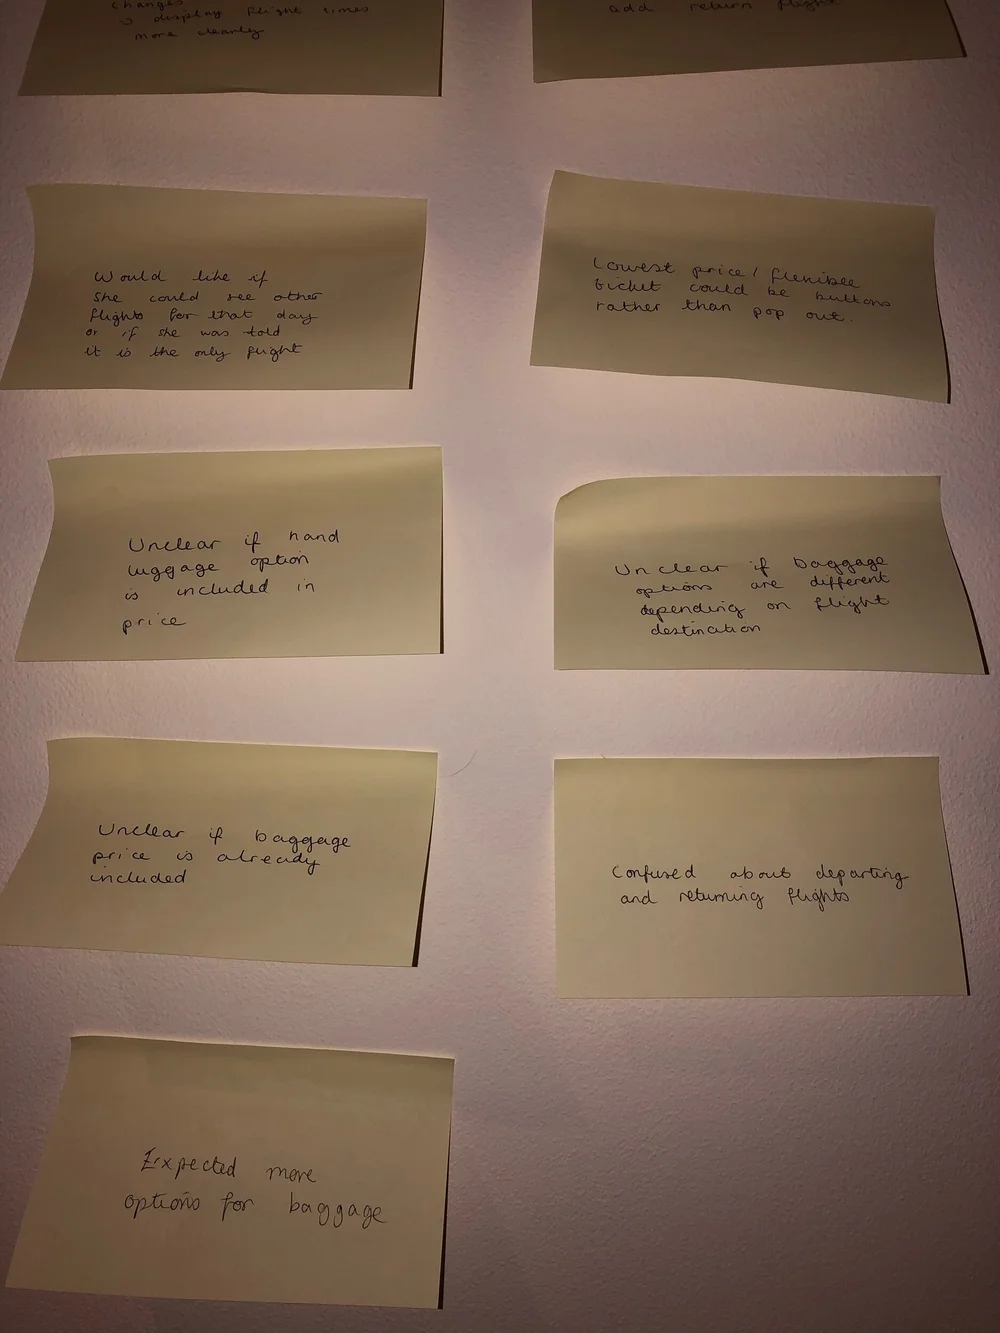 changes
is display flight times
more clearly
add return flight
Would like if
she could see other
flights for that day
or if she was told
it is the only flight
Lowest price/ flexibee
ticket could be buttons
rather than pop out.
Unclear if hand
luggage option
is included in
price
Unclear if baggage
options are different
depending on flight
destination
Unclear if baggage
price is already
included
Confused about departing
and returning flights
Expected more
options for baggage